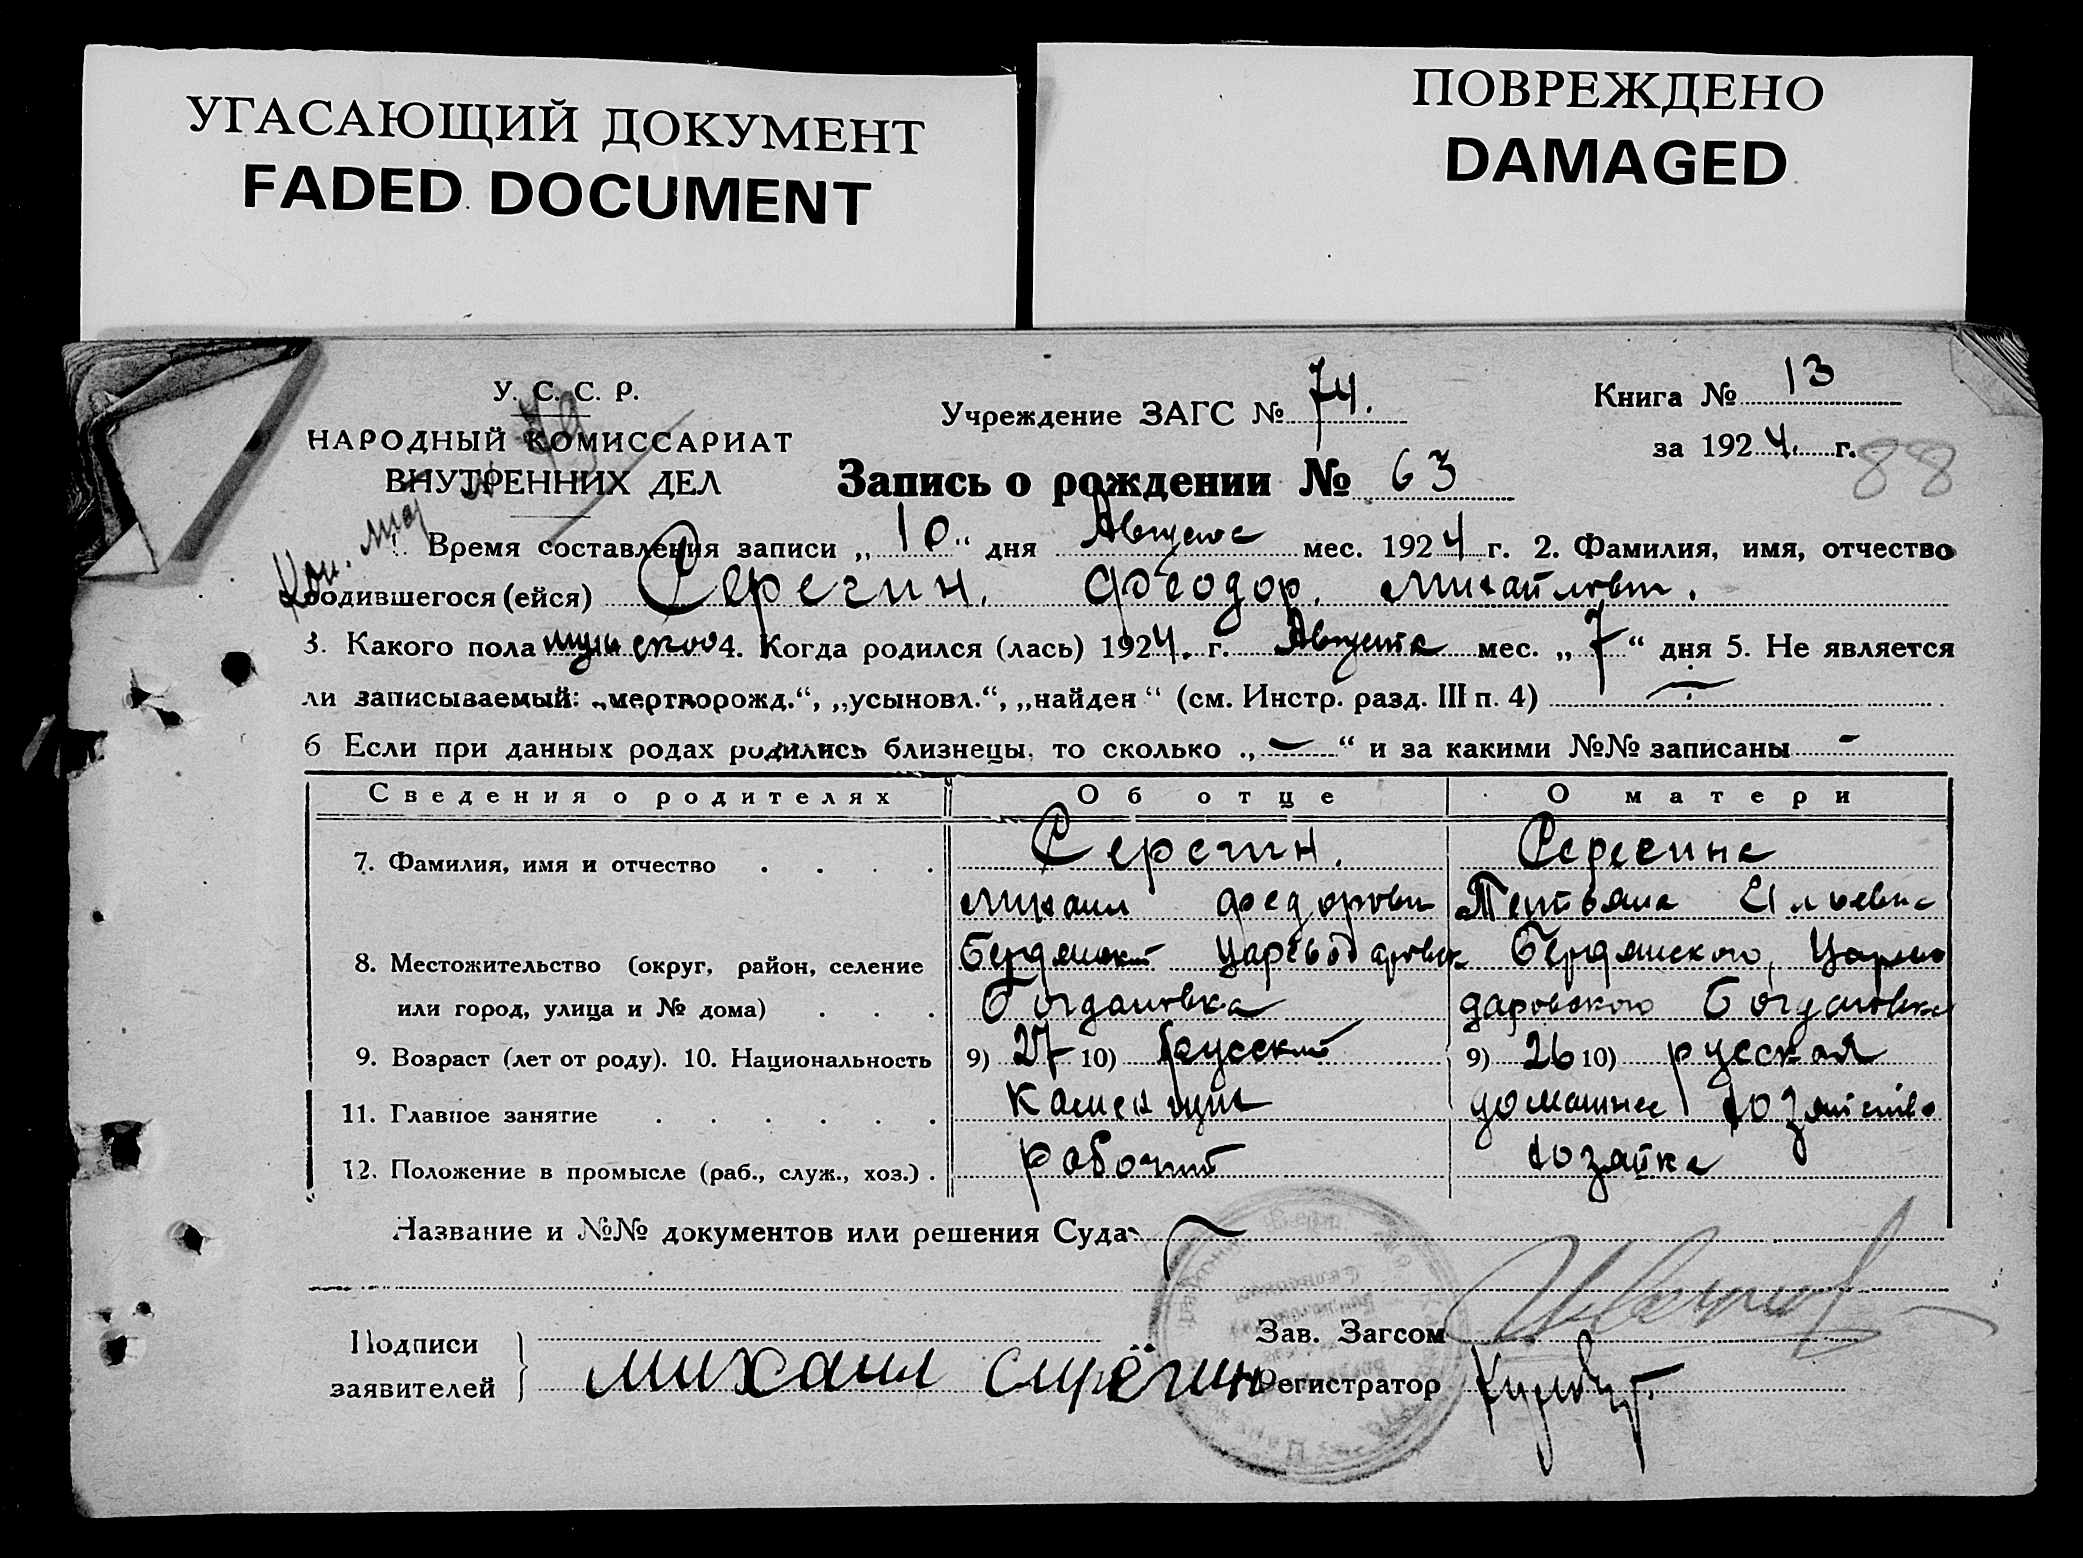 УГАСАЮЩИЙ ДОКУМЕНТ
FADED DOCUMENT
ПОВРЕЖДЕНО
DAMAGED
У. С. С. Р.
НАРОДНЫЙ КОМИССАРИАТ
ВНУТРЕННИХ ДЕЛ
Учреждение ЗАГС № 74.
Книга № 13
за 1924. г.
88
Запись о рождении № 63
Время составления записи „10“ дня Августа мес. 1924 г. 2. Фамилия, имя, отчество
родившегося (ейся) Серегин. Феодор. Михайлович.
3. Какого пола мужского 4. Когда родился (лась) 1924. г. Августа мес. „7“ дня 5. Не является
ли записываемый: „мертворожд.“, „усыновл.“, „найден“ (см. Инстр. разд. III п. 4) —
6 Если при данных родах родились близнецы, то сколько „—“ и за какими №№ записаны -
Сведения о родителях Об отце О матери
7. Фамилия, имя и отчество Серегин. Серегина
Михаил Федорови Татьяна Ильевна
8. Местожительство (округ, район, селение Бердянский Цареводаровск Бердянского, Царево
или город, улица и № дома) Богдановка даровского Богдановка
9. Возраст (лет от роду). 10. Национальность 9) 27 10) Русский 9) 26 10) русская
11. Главное занятие Каменщик домашнее хозяйство
12. Положение в промысле (раб., служ., хоз.) рабочий хозяйка
Название и №№ документов или решения Суда
Подписи
заявителей
Михаил Сирёгин
Зав. Загсом
Регистратор